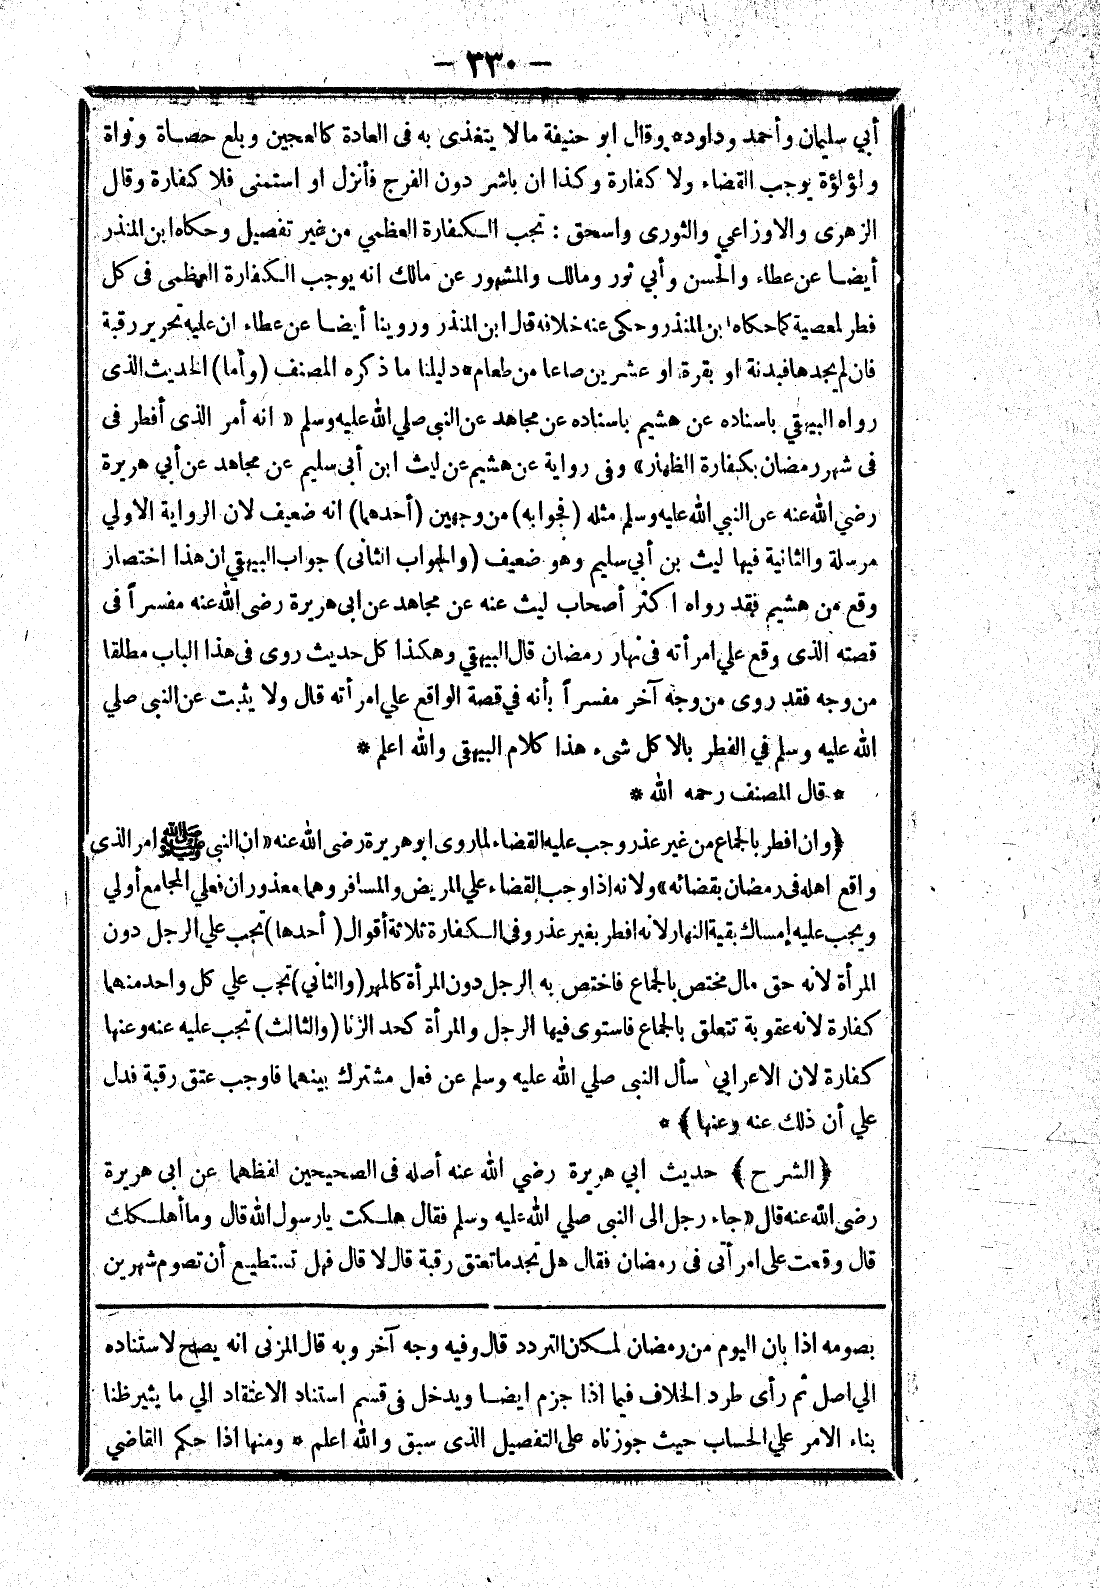 — ٣٣٠ —
أبي سليمان وأحمد وداود* وقال ابو حنيفة مالا يتغذى به فى العادة كالعجين وبلع حصاة ونواة
ولؤلؤة يوجب القضاء ولا كفارة وكذا ان باشر دون الفرج فأنزل او استمنى فلا كفارة وقال
الزهرى والاوزاعي والثورى واسحق : تجب الكفارة العظمي من غير تفصيل وحكاه ابن المنذر
أيضا عن عطاء والحسن وأبي ثور ومالك والمشهور عن مالك انه يوجب الكفارة العظمى فى كل
فطر لمعصية كما حكاه ابن المنذر وحكى عنه خلافه قال ابن المنذر وروينا أيضا عن عطاء ان عليه تحرير رقبة
فان لم يجدها فبدنة او بقرة او عشرين صاعا من طعام* دليلنا ما ذكره المصنف (وأما) الحديث الذى
رواه البيهقي باسناده عن هشيم باسناده عن مجاهد عن النبى صلي الله عليه وسلم « انه أمر الذى أفطر فى
فى شهر رمضان بكفارة الظهار» وفى رواية عن هشيم عن ليث ابن أبى سليم عن مجاهد عن أبي هريرة
رضي الله عنه عن النبي الله عليه وسلم مثله (فجوابه) من وجهين (أحدهما) انه ضعيف لان الرواية الاولي
مرسلة والثانية فيها ليث بن أبي سليم وهو ضعيف (والجواب الثانى) جواب البيهقي ان هذا اختصار
وقع من هشيم فقد رواه اكثر أصحاب ليث عنه عن مجاهد عن ابى هريرة رضى الله عنه مفسراً فى
قصته الذى وقع علي امرأته فى نهار رمضان قال البيهقي وهكذا كل حديث روى فى هذا الباب مطلقا
من وجه فقد روى من وجه آخر مفسراً بأنه في قصة الواقع علي امرأته قال ولا يثبت عن النبى صلي
الله عليه وسلم في الفطر بالاكل شىء هذا كلام البيهقى والله اعلم *
* قال المصنف رحمه الله *
﴿وان افطر بالجماع من غير عذر وجب عليه القضاء لما روى ابو هريرة رضى الله عنه «ان النبى ﷺ امر الذى
واقع اهله فى رمضان بقضائه» ولانه اذا وجب القضاء علي المريض والمسافر وهما معذوران فعلي المجامع أولي
ويجب عليه إمساك بقية النهار لانه افطر بغير عذر وفى الكفارة ثلاثة أقوال ( أحدها) تجب علي الرجل دون
المرأة لانه حق مال مختص بالجماع فاختص به الرجل دون المرأة كالمهر (والثاني) تجب علي كل واحد منهما
كفارة لانه عقوبة تتعلق بالجماع فاستوى فيها الرجل والمرأة كحد الزنا (والثالث) تجب عليه عنه وعنها
كفارة لان الاعرابي سأل النبى صلي الله عليه وسلم عن فعل مشترك بينهما فاوجب عتق رقبة فدل
علي أن ذلك عنه وعنها﴾ *
﴿الشرح﴾ حديث ابي هريرة رضي الله عنه أصله فى الصحيحين لفظهما عن ابى هريرة
رضى الله عنه قال «جاء رجل الى النبى صلي الله عليه وسلم فقال هلكت يارسول الله قال وما أهلكك
قال وقعت على امرأتى فى رمضان فقال هل تجد ما تعتق رقبة قال لا قال فهل تستطيع أن تصوم شهرين
بصومه اذا بان اليوم من رمضان لمكان التردد قال وفيه وجه آخر وبه قال المزنى انه يصح لاستناده
الي اصل ثم رأى طرد الخلاف فيما اذا جزم ايضا ويدخل فى قسم استناد الاعتقاد الي ما يثير ظنا
بناء الامر علي الحساب حيث جوزناه على التفصيل الذى سبق والله اعلم * ومنها اذا حكم القاضي